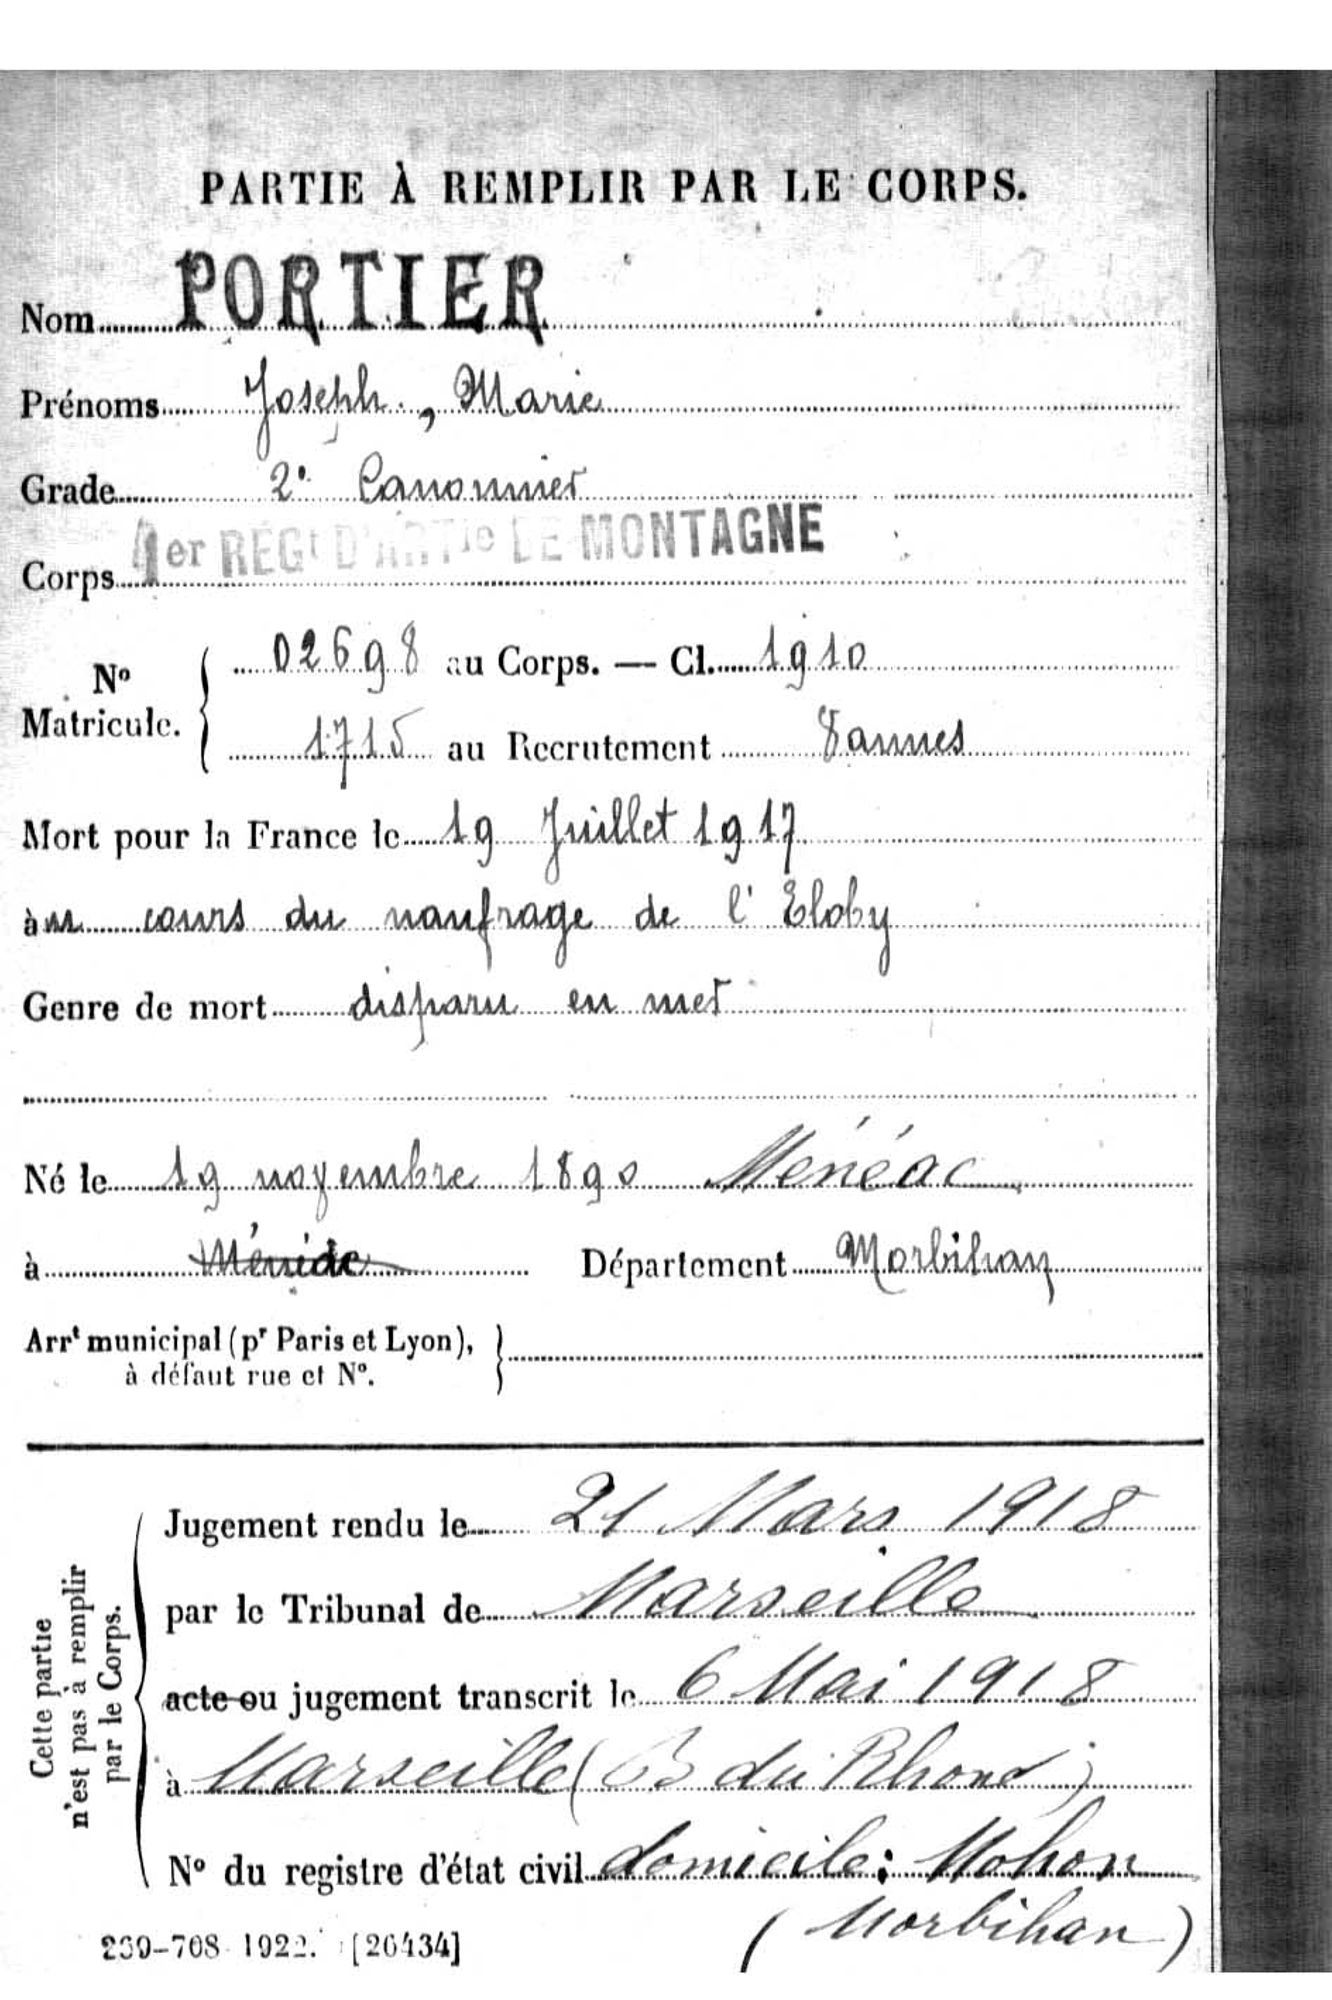 PARTIE À REMPLIR PAR LE CORPS.
Nom PORTIER
Prénoms Joseph, Marie
Grade 2e Canonnier
Corps 1er RÉGt D'ARTie DE MONTAGNE
No Matricule. 02698 au Corps. — Cl. 1910
1715 au Recrutement Vannes
Mort pour la France le 19 Juillet 1917
àu cours du naufrage de l'Eloby
Genre de mort disparu en mer
Né le 19 novembre 1890 Ménéac
à Département Morbihan
Arrt municipal (pr Paris et Lyon),
à défaut rue et No.
Cette partie
n'est pas à remplir
par le Corps.
Jugement rendu le 21 Mars 1918
par le Tribunal de Marseille
acte ou jugement transcrit le 6 Mai 1918
à Marseille (B du Rhone)
No du registre d'état civil domicile: Mohon
(Morbihan)
1922. [26434]